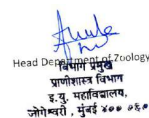 Head Department of Zoology
विभाग प्रमुख
प्राणीशास्त्र विभाग
इ. यु. महाविद्यालय,
जोगेश्वरी , मुंबई ४०० ०६०